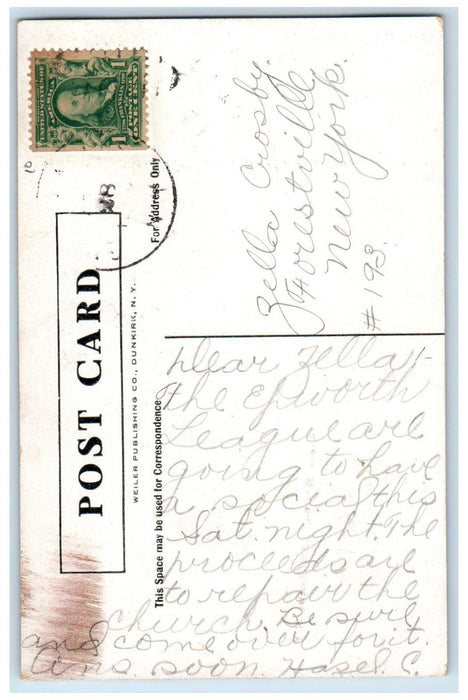 UNITED STATES OF AMERICA
1 1
ONE CENT
08
POST CARD
WEILER PUBLISHING CO., DUNKIRK, N. Y.
This Space may be used for Correspondence
For Address Only
Zella Crosby.
Forestville
New York.
#193.
Dear Zella,-
The Epworth
League are
going to have
a social this
Sat. night. The
proceeds are
to repair the
church. Be sure
and come over for it.
Ans. soon. Hazel C.